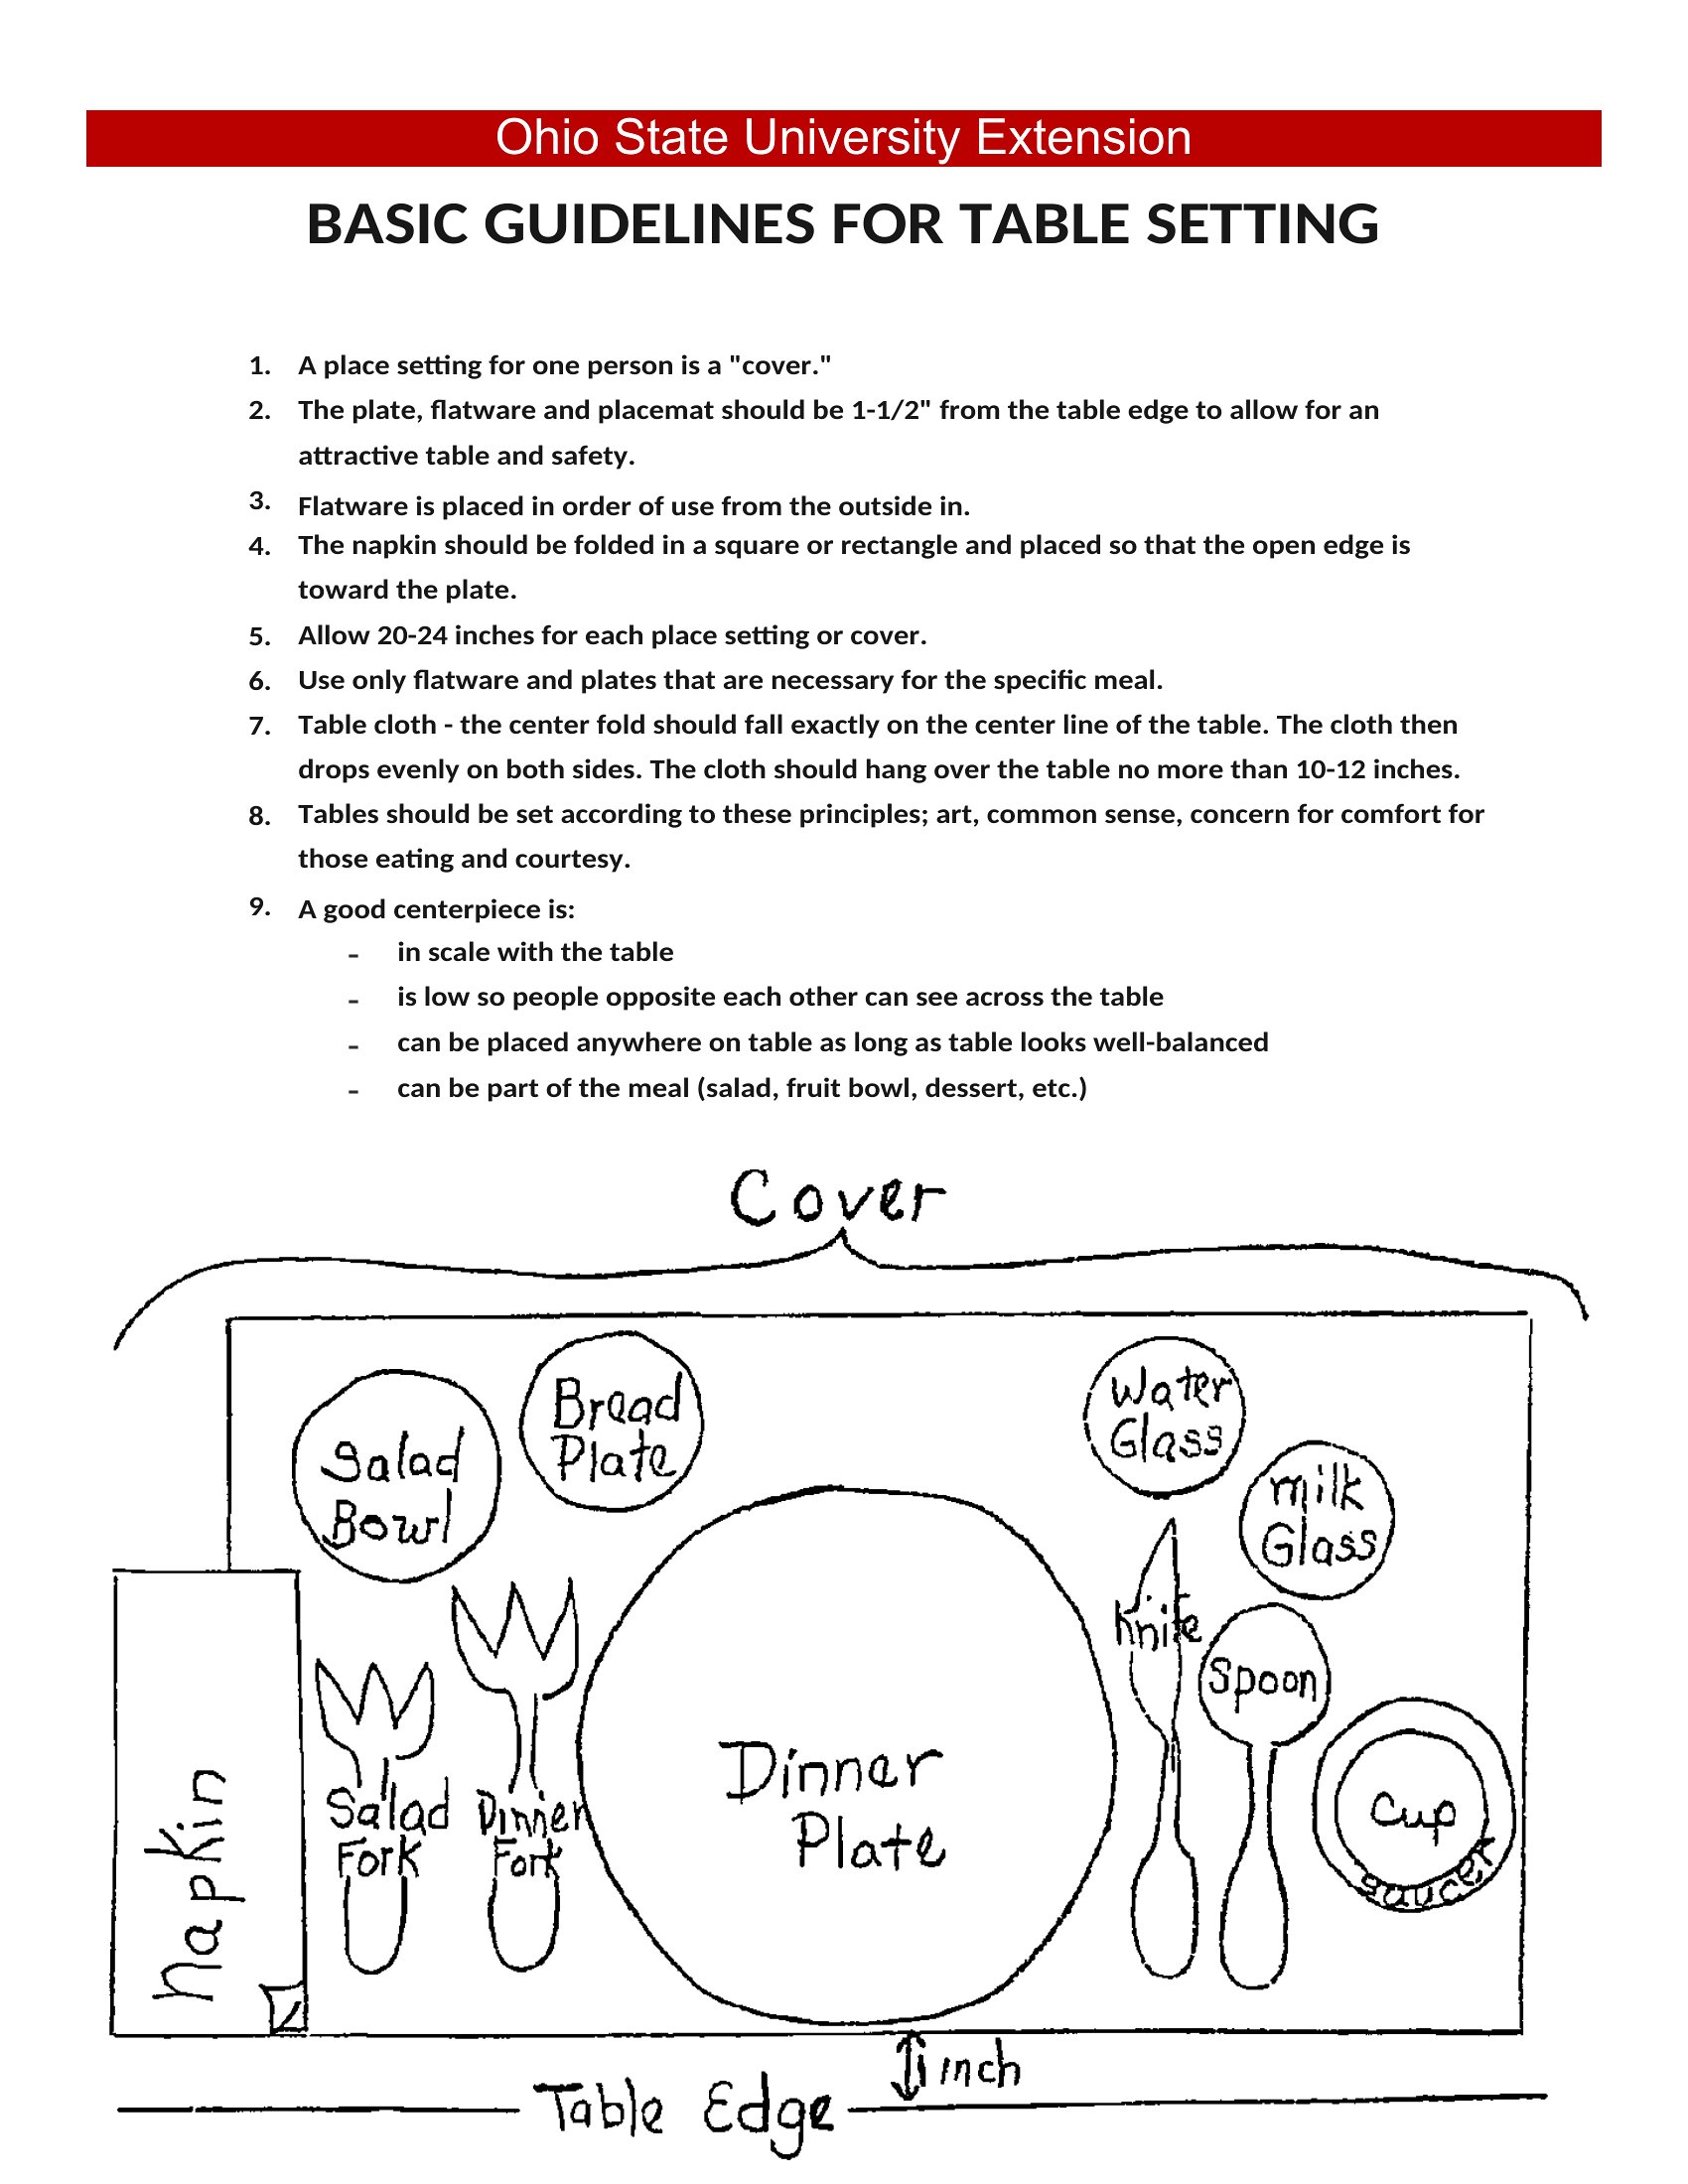 Ohio State University Extension
BASIC GUIDELINES FOR TABLE SETTING
1. A place setting for one person is a "cover."
2. The plate, flatware and placemat should be 1-1/2" from the table edge to allow for an
attractive table and safety.
3. Flatware is placed in order of use from the outside in.
4. The napkin should be folded in a square or rectangle and placed so that the open edge is
toward the plate.
5. Allow 20-24 inches for each place setting or cover.
6. Use only flatware and plates that are necessary for the specific meal.
7. Table cloth - the center fold should fall exactly on the center line of the table. The cloth then
drops evenly on both sides. The cloth should hang over the table no more than 10-12 inches.
8. Tables should be set according to these principles; art, common sense, concern for comfort for
those eating and courtesy.
9. A good centerpiece is:
- in scale with the table
- is low so people opposite each other can see across the table
- can be placed anywhere on table as long as table looks well-balanced
- can be part of the meal (salad, fruit bowl, dessert, etc.)
Cover
Salad
Bowl
Bread
Plate
Water
Glass
milk
Glass
Knife
Spoon
Napkin
Salad
Fork
Dinner
Fork
Dinner
Plate
Cup
saucer
1 inch
Table Edge